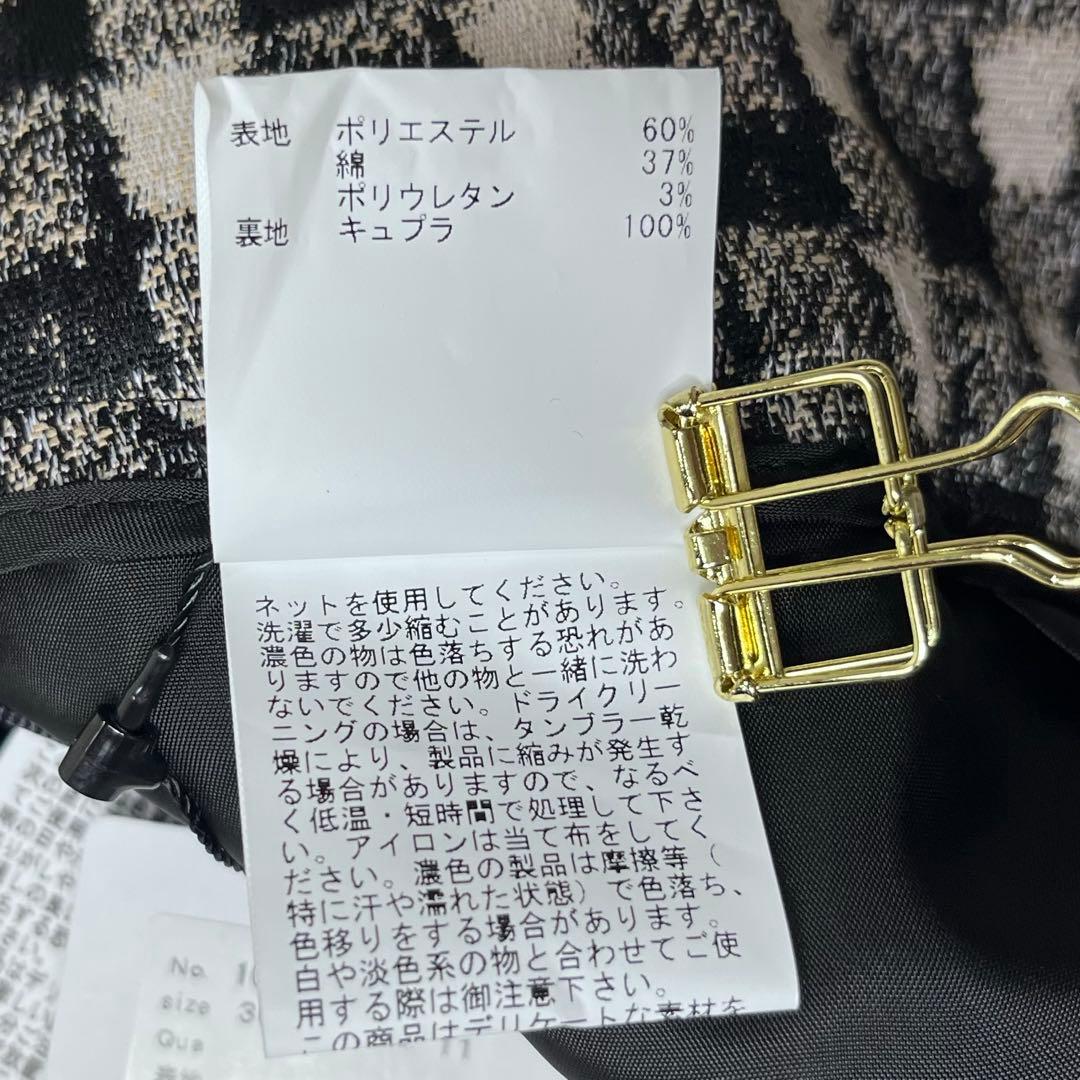 表地 ポリエステル 60%
綿 37%
ポリウレタン 3%
裏地 キュプラ 100%
ネットを使用してください。
洗濯で多少縮むことがあります。
濃色の物は色落ちする恐れがあ
りますので他の物と一緒に洗わ
ないでください。ドライクリー
ニングの場合は、タンブラー乾
燥により、製品に縮みが発生す
る場合がありますので、なるべ
く低温・短時間で処理して下さ
い。アイロンは当て布をしてく
ださい。濃色の製品は摩擦等（
特に汗や濡れた状態）で色落ち、
色移りをする場合があります。
白や淡色系の物と合わせてご使
用する際は御注意下さい。
この商品はデリケートな素材を
No.
size 3
Qua